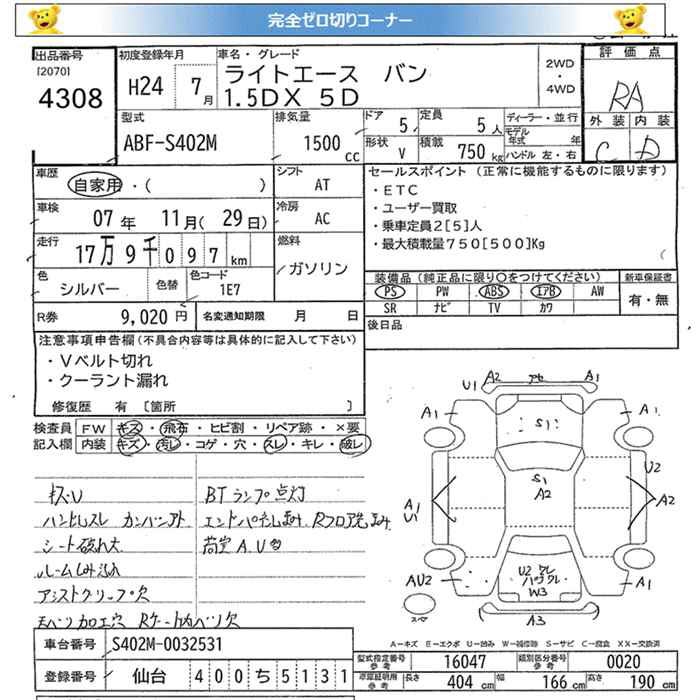 完全ゼロ切りコーナー
出品番号
[2070]
4308
初度登録年月
H24 7月
車名・グレード
ライトエース バン
1.5DX 5D
2WD
・
4WD
評価点
RA
外装 内装
C D
型式
ABF-S402M
排気量
1500
cc
ドア
5
定員
5人
ディーラー・並行
モデル年式 年
ハンドル 左・右
形状
V
積載
750kg
車歴
自家用・( )
シフト
AT
車検
07年 11月(29日)
冷房
AC
走行
17万9千097km
燃料
ガソリン
色
シルバー
色替
色コード
1E7
R券
9,020円
名変通知期限 月 日
セールスポイント (正常に機能するものに限ります)
・ETC
・ユーザー買取
・乗車定員2[5]人
・最大積載量750[500]Kg
装備品(純正品に限り○をつけてください)
PS PW ABS エアB AW
SR ナビ TV カワ
新車保証書
有・無
後日品
注意事項申告欄(不具合内容等は具体的に記入して下さい)
・Vベルト切れ
・クーラント漏れ
修復歴 有 [箇所 ]
検査員
記入欄
FW キズ・飛石・ヒビ割・リペア跡・×要
内装 キズ・汚レ・コゲ・穴・スレ・キレ・破レ
キズU
ハンドルスレ
シート破れ大
ルームしみ汚れ
アシストグリップ欠
BTランプ点灯
荷室A.U
U1 A2 アセ A1
A1 A1
S1
S1
A2
A U1
U2
A2
AU2
A1
U2 ワレ
W3
A3
スペ
A=キズ E=エクボ U=凹み W=補修跡 S=サビ C=腐食 XX=交換済
車台番号
S402M-0032531
登録番号
仙台 400ち5131
型式指定番号
参考
16047
類別区分番号
参考
0020
車庫証明用
参考
長さ 404 cm 幅 166 cm 高さ 190 cm